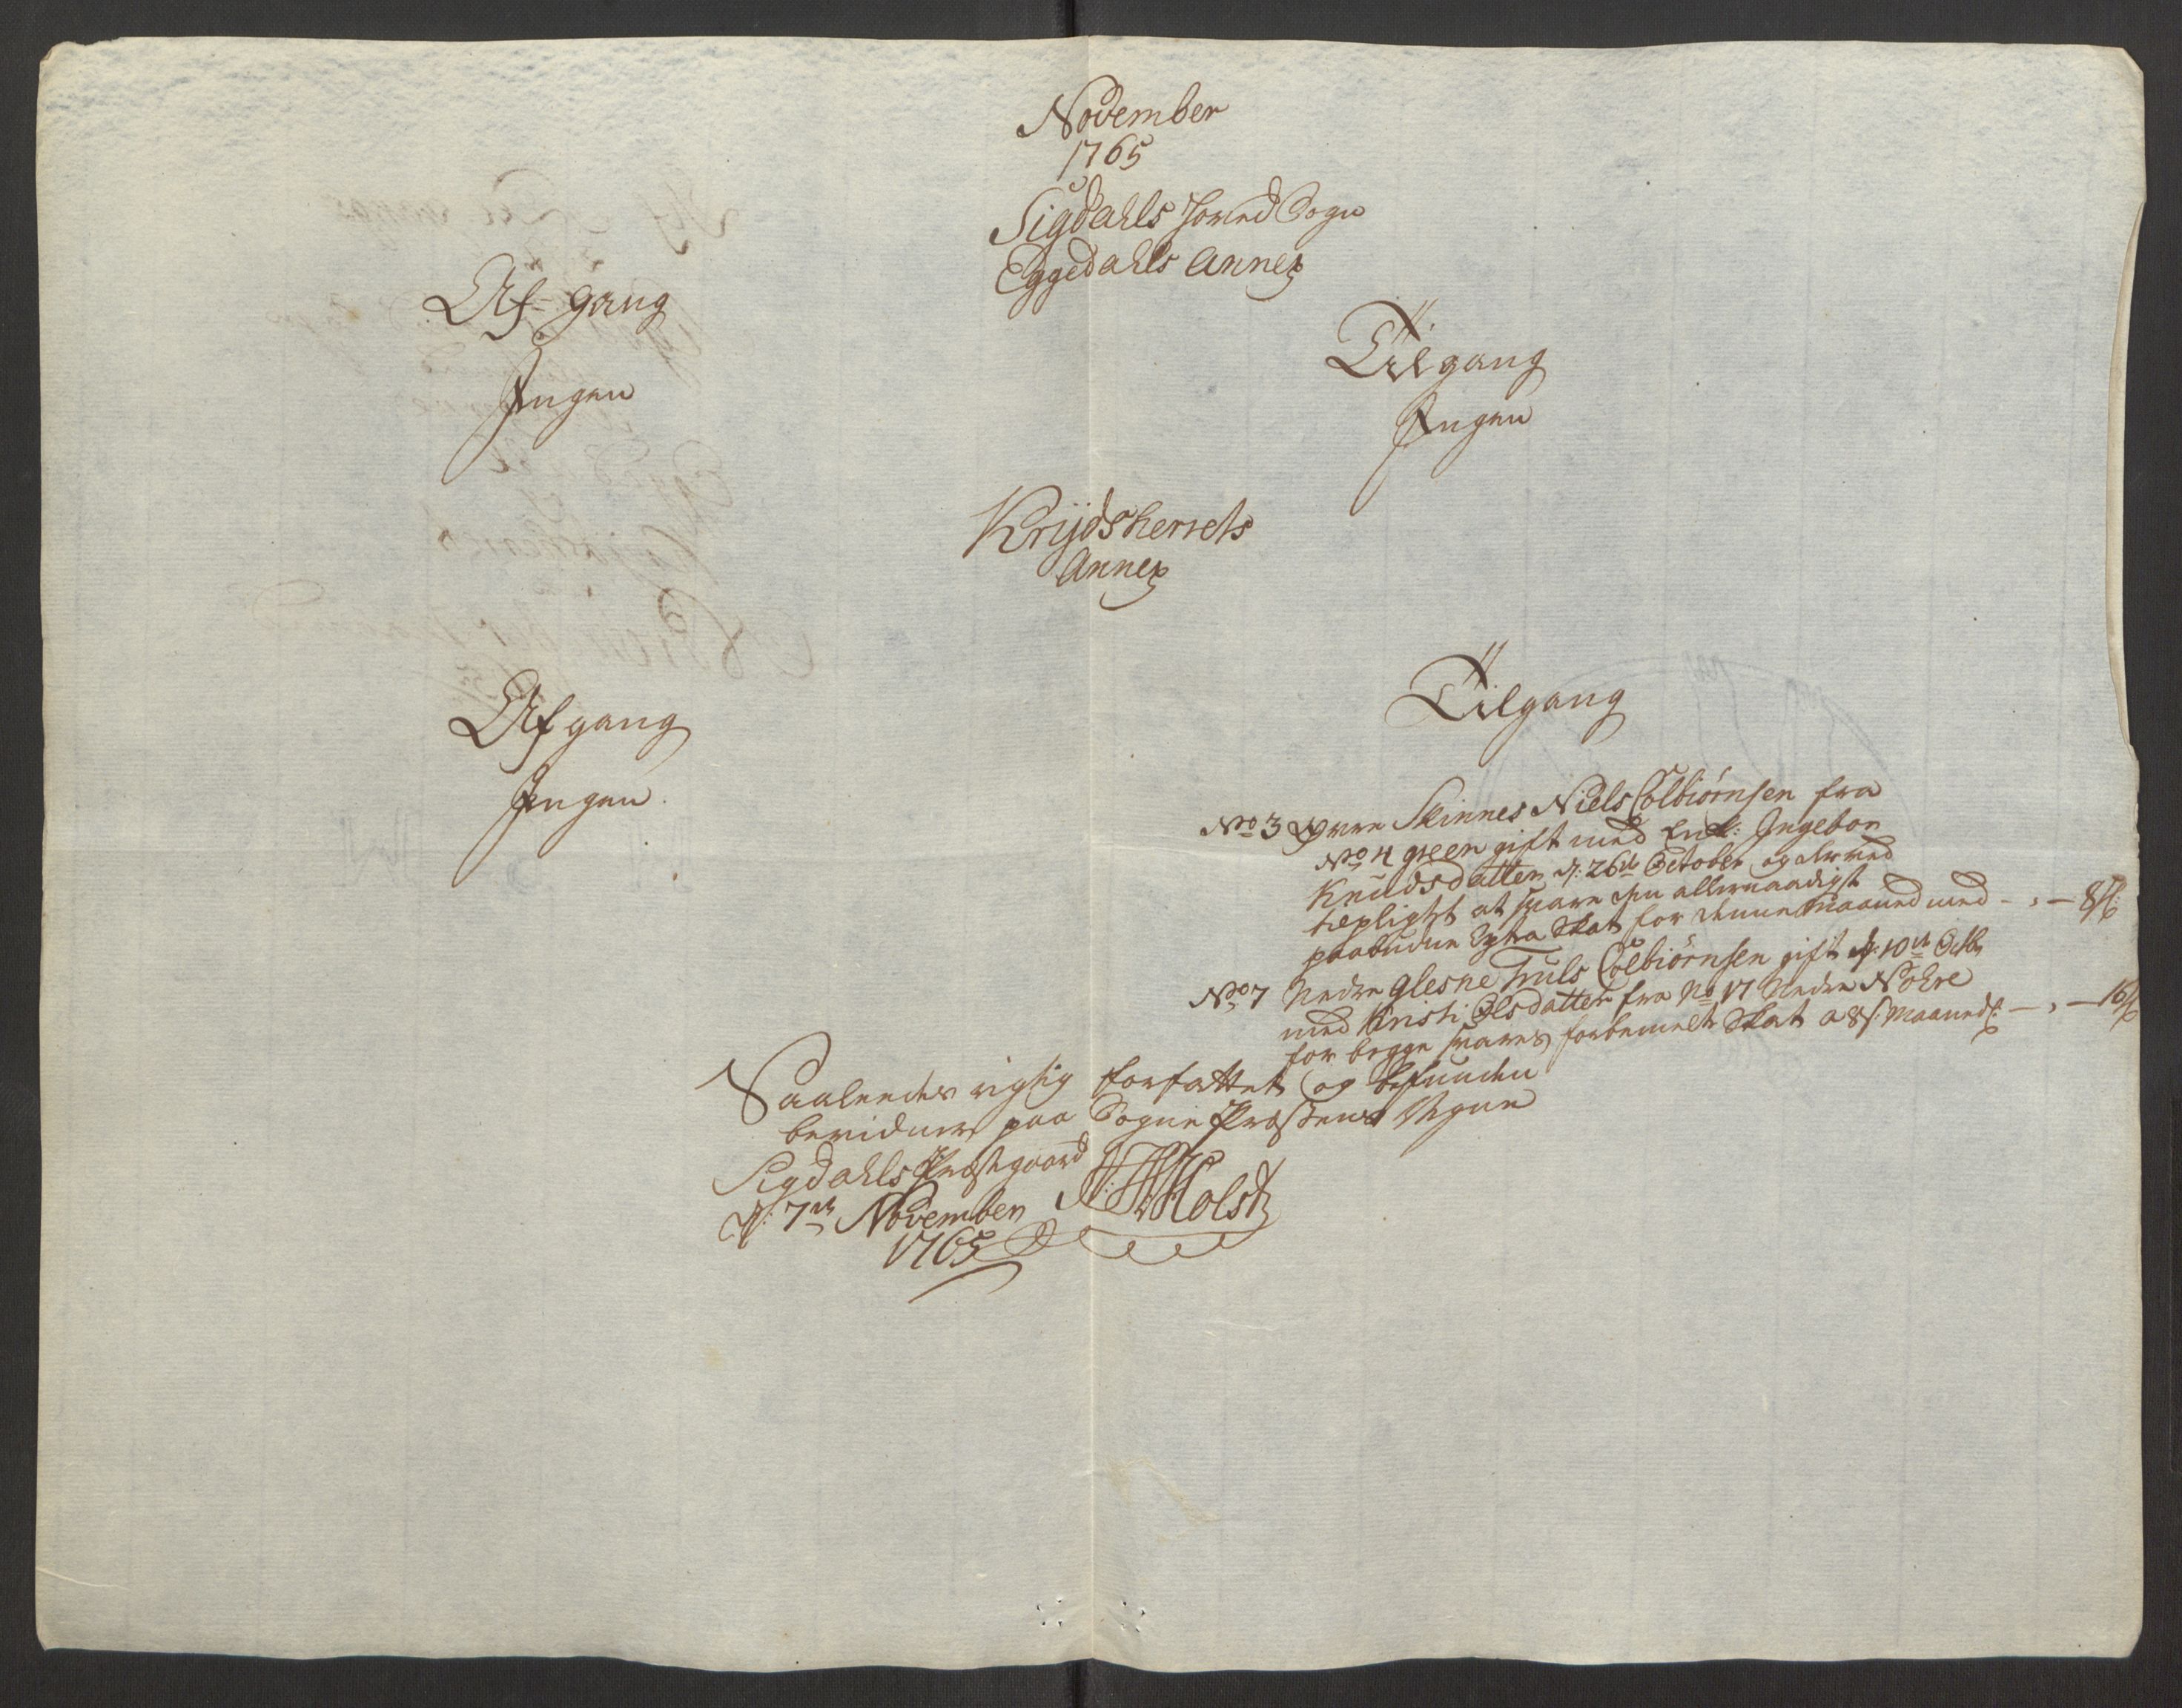 November
1765
Sigdahls Hoved Sogn
Eggedahls Annex
Af-gang
Ingen
Tilgang
Ingen
Krydsherrets
Annex
Afgang
Ingen
Tilgang
No 3 Øvre Skinnes Niels Colbiørnsen fra
No 4 green gift med Enk: Ingebor
Knudsdatter d: 26de October og
pligtig at svare den allernaadigst
paabudne Extra Skat for denne Maaned med - , - 8 s:
No 7 Nedre Glesne Truls Colbiørnsen gift d: 10de Octbr
med Kristi Olsdatter fra No 17 Nedre Nohre
for begge svares forbemelte Skat a 8 s: Maanedl: - , - 16 s
Saaledes rigtig forfattet og befunden
bevidner paa Sogne Præstens Vegne
Sigdahls Præstegaard
d: 7de November
1765
Holst